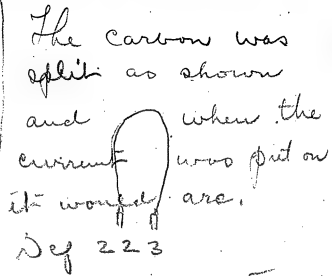 The carbon was
split as shown
and when the
current was put on
it would arc.
Def 223